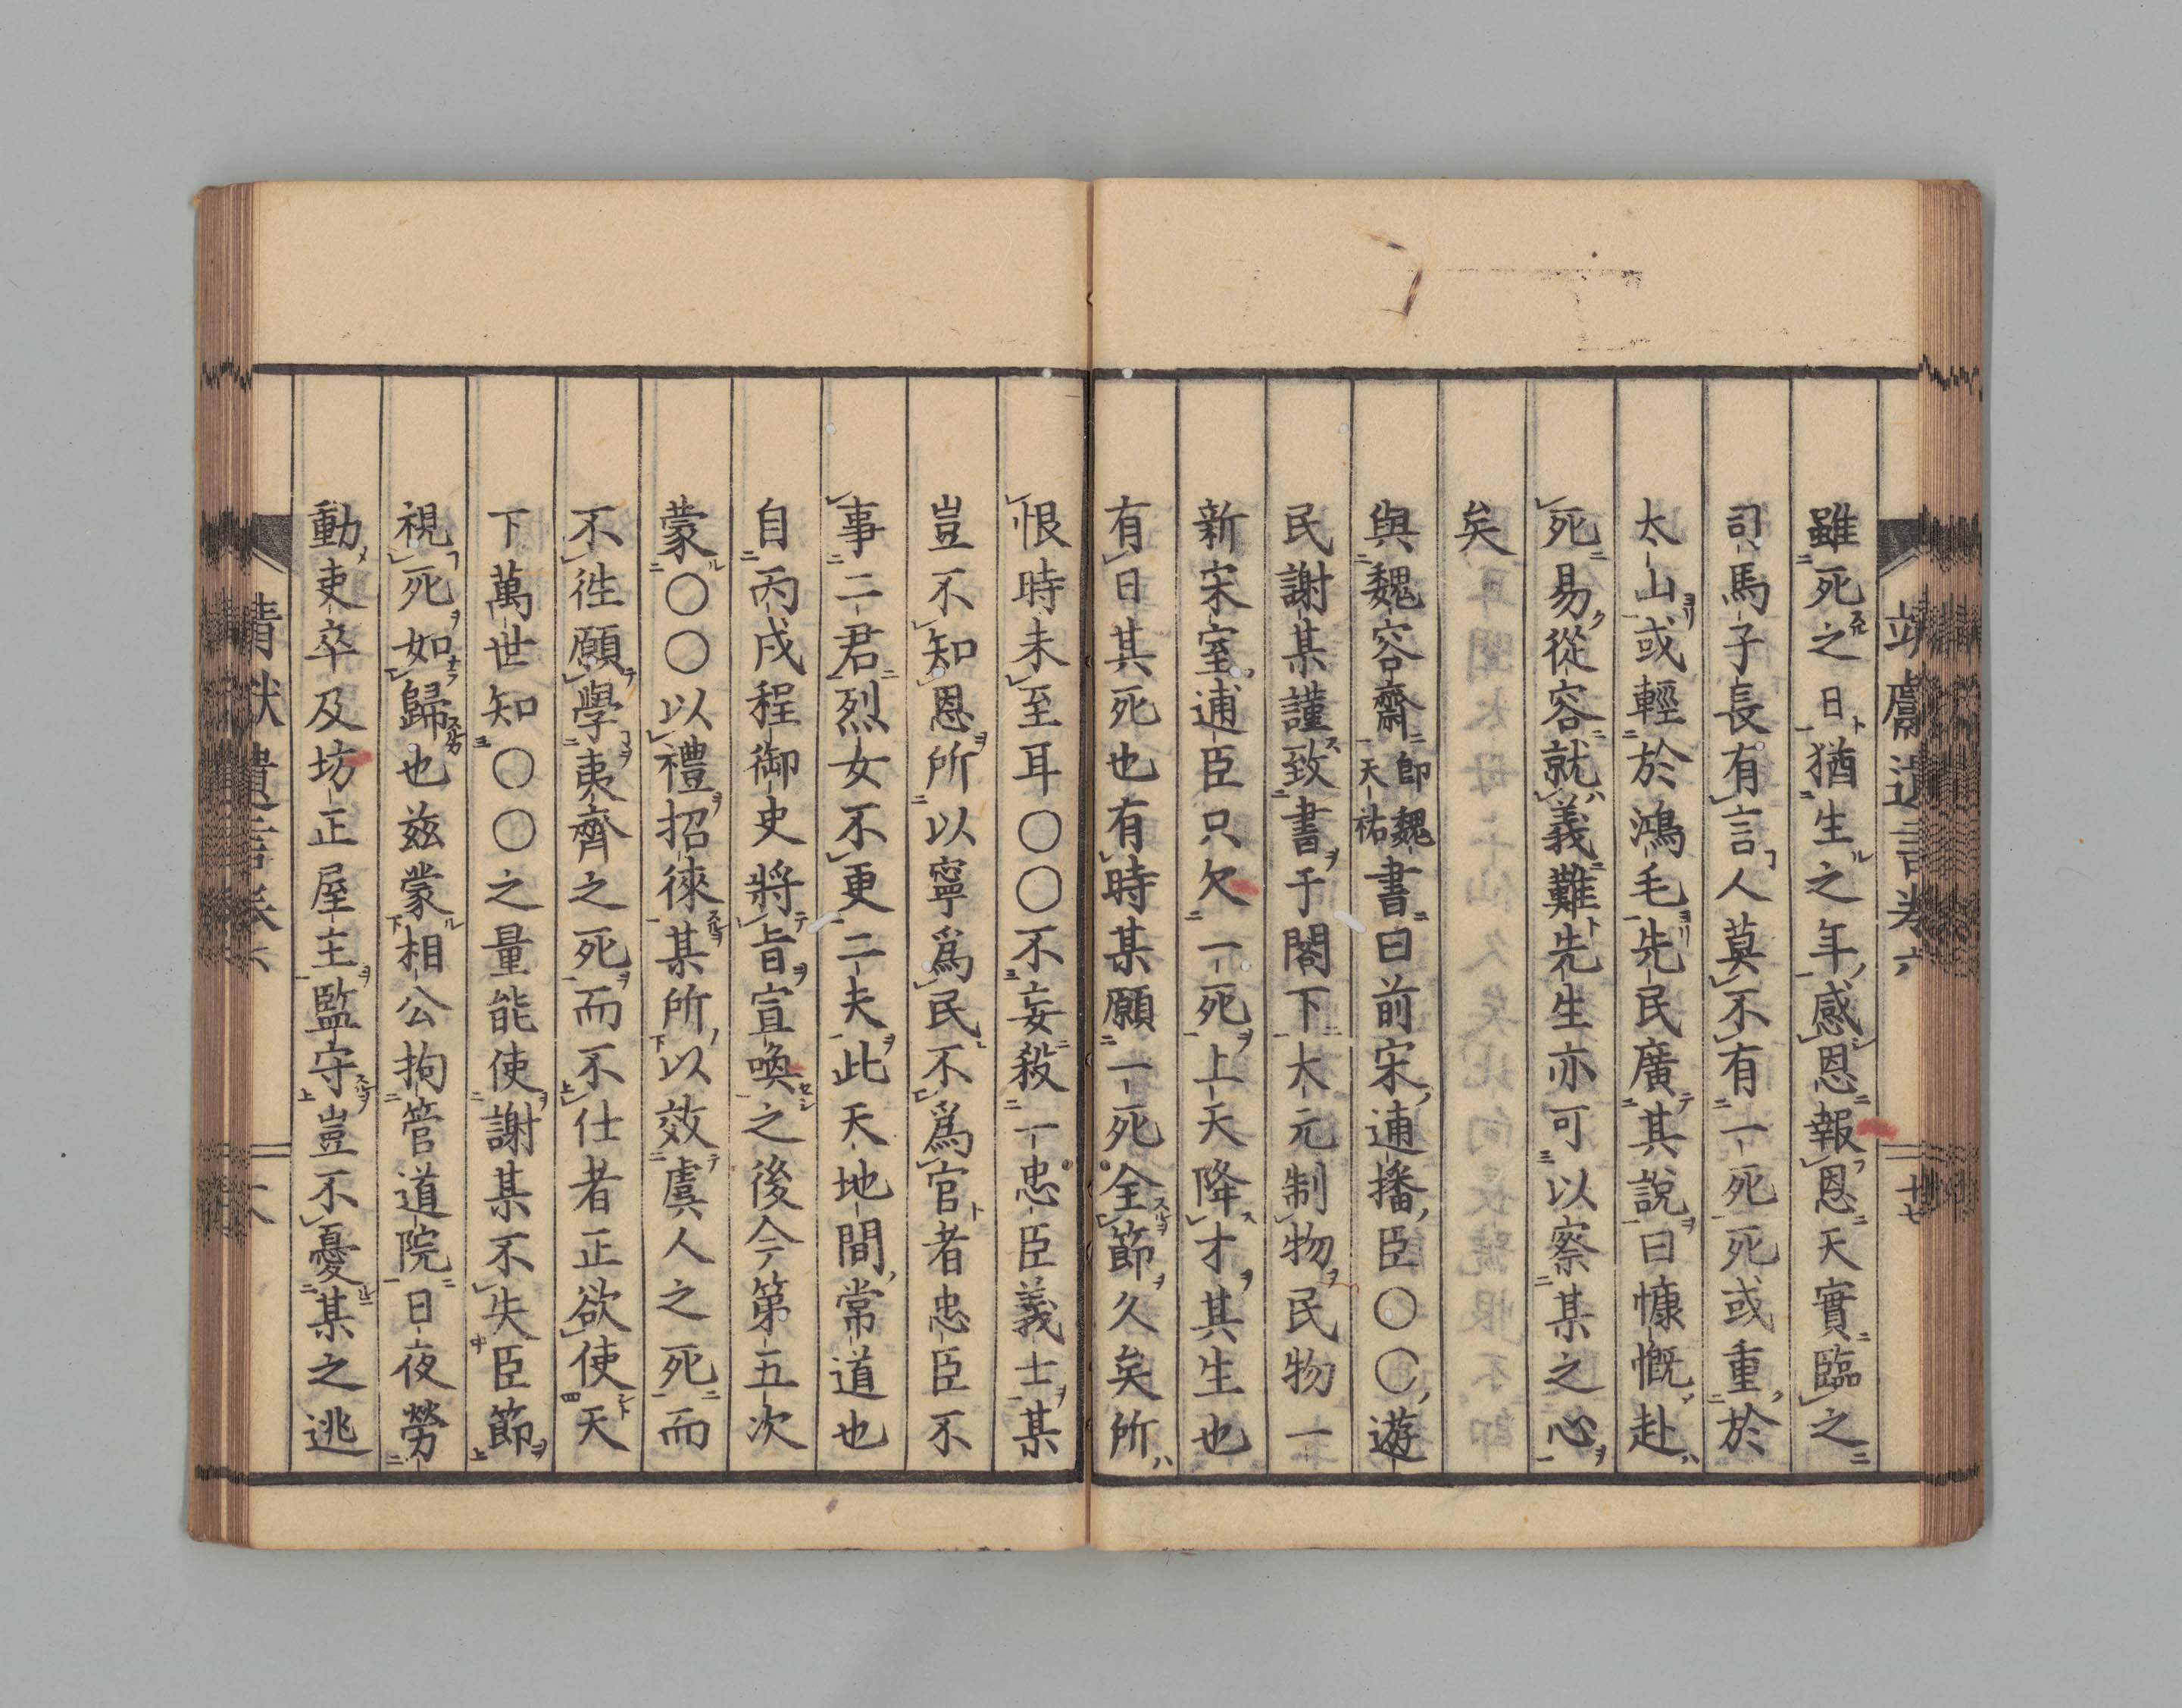 雖死之日猶生之年感恩報恩天實臨之
司馬子長有言人莫不有一死死或重於
太山或輕於鴻毛先民廣其說曰慷慨赴
死易從容就義難先生亦可以察某之心
矣
與魏容齋即魏天祐書曰前宋逋播臣〇〇遊
民謝某謹致書于閣下大元制物民物一
新宋室逋臣只欠一死上天降才其生也
有日其死也有時某願一死全節久矣所
恨時未至耳〇〇不妄殺一忠臣義士某
豈不知恩所以寧爲民不爲官者忠臣不
事二君烈女不更二夫此天地間常道也
自丙戌程御史將旨宣喚之後今第五次
蒙〇〇以禮招徠某所以效虞人之死而
不徃願學夷齊之死而不仕者正欲使天
下萬世知〇〇之量能使謝某不失臣節
視死如歸也兹蒙相公拘管道院日夜勞
動吏卒及坊正屋主監守豈不憂某之逃